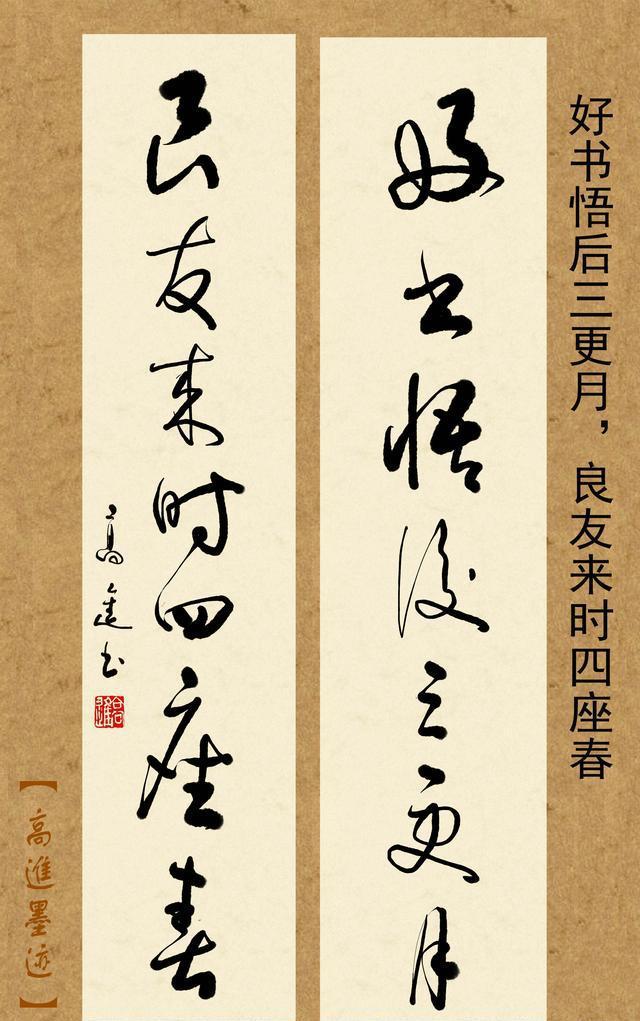 好书悟后三更月，良友来时四座春
好书悟後三更月
良友来时四座春
高進书
【高進墨迹】